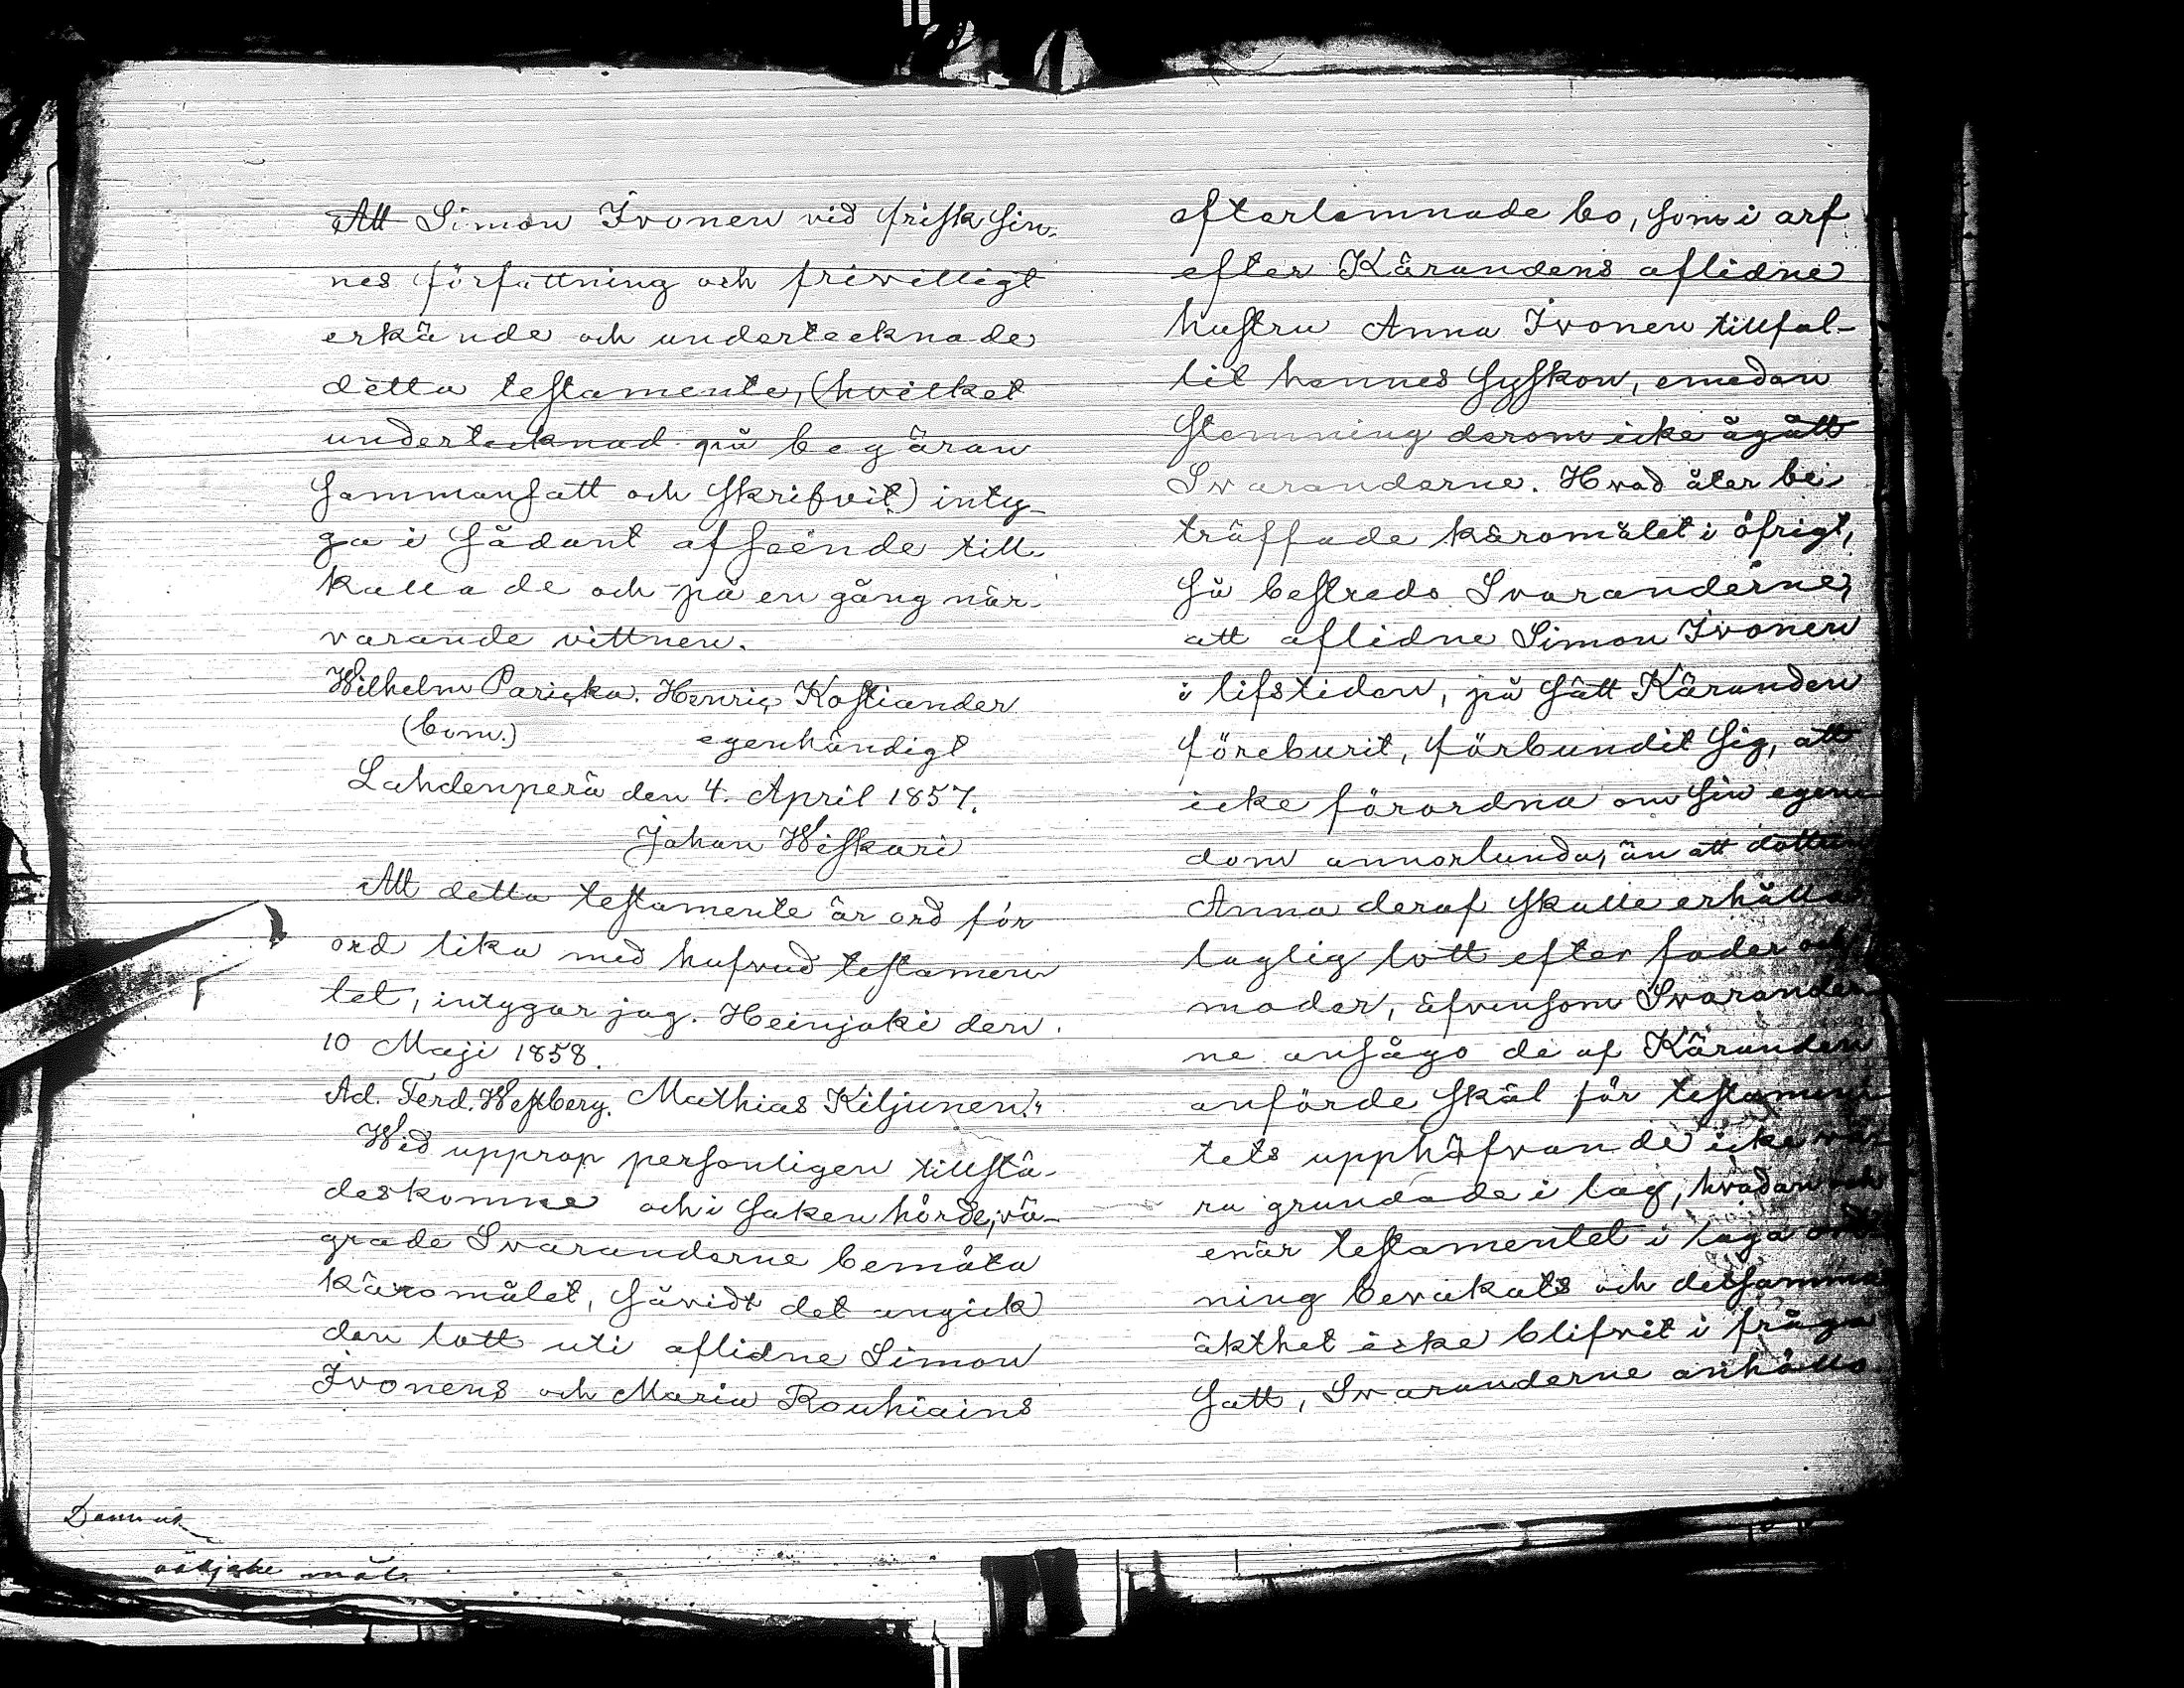 Att Simon Ivonen vid frisk sin-
nes författning och frivilligt
erkände och undertecknade
detta testamente, (hvilket
undertecknad på begäran
sammansatt och skrifvit) inty-
ga i sådant afseende till-
kallade och på en gång när-
varande vittnen.
Wilhelm Pariçka. Henriç Kostiander
(bom.) egenhändigt
Lahdenperä den 4. April 1857.
Johan Wiskari
Att detta testamente är ord för
ord lika med hufvud testamen
tet, intygar jag. Heinjoki den
10 Maji 1858.
Ad. Ferd. Westberg. Mathias Kiljunen."
Wid upprop personligen tillstä-
deskomne och i saken hörde, vä-
grade Svaranderne bemöta
käromålet, såvidt det angick
den lott uti aflidne Simon
Ivonens och Maria Rouhiains
efterlemnade bo, som i arf
efter Kärandens aflidne
hustru Anna Ivonen tillfal-
lit hennes syskon, emedan
stemning derom icke ågått
Svaranderne. Hvad åter be-
träffade käromålet i öfrigt,
så bestredo Svaranderne,
att aflidne Simon Ivonen
i lifstiden, på sätt Käranden
föreburit, förbundit sig, att
icke förordna om sin egen-
dom annorlunda, än att dottren
Anna deraf skulle erhålla
laglig lott efter fader och
moder, äfvensom Svarander-
ne ansågo de af Käranden
anförde skäl för testamen-
tets upphäfvande icke va-
ra grundade i lag, hvadan och
enär testamentet i laga ord-
ning bevakats och detsammas
äkthet icke blifvit i fråga
satt, Svaranderne anhöllo
mål.